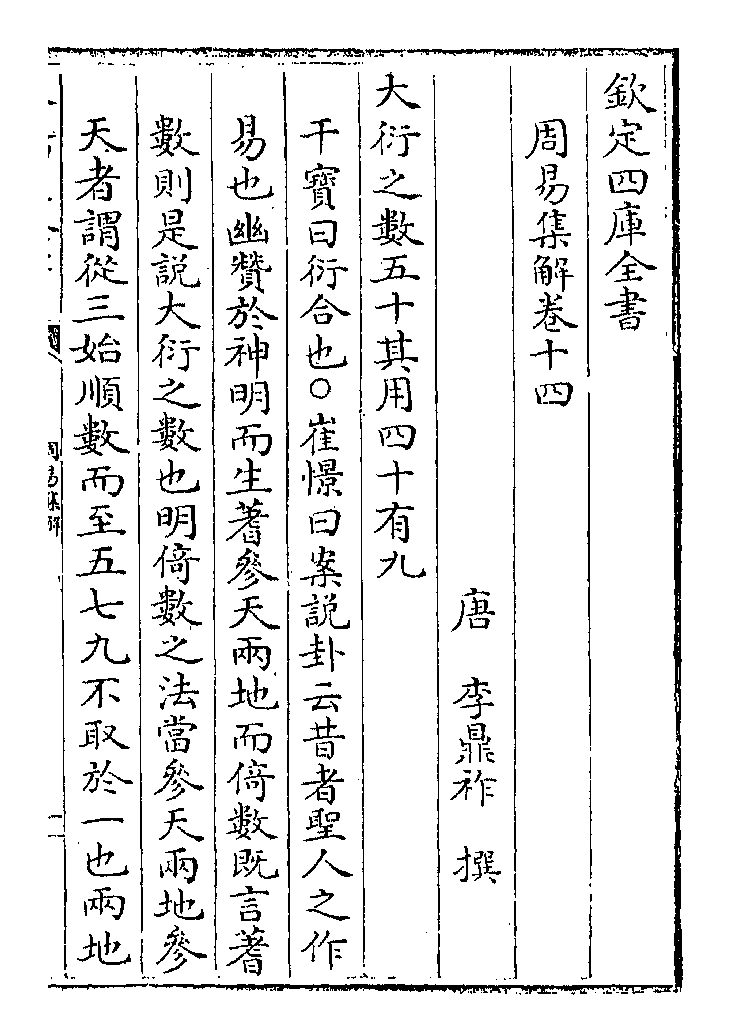 欽定四庫全書
周易集解卷十四
唐 李鼎祚 撰
大衍之數五十其用四十有九
干寶曰衍合也○崔憬曰案說卦云昔者聖人之作
易也幽贊於神明而生蓍參天兩地而倚數既言蓍
數則是說大衍之數也明倚數之法當參天兩地參
天者謂從三始順數而至五七九不取於一也兩地
周易集解